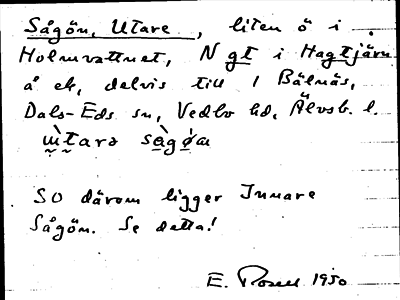 Sågön, Utare, liten ö i
Holmvattnet, N gt i Hagtjärn
å ek, delvis till 1 Bälnäs,
Dals-Eds sn, Vedbo hd, Älvsb. l.
sågöa
SO därom ligger Innare
Sågön. Se detta!
E. 1950